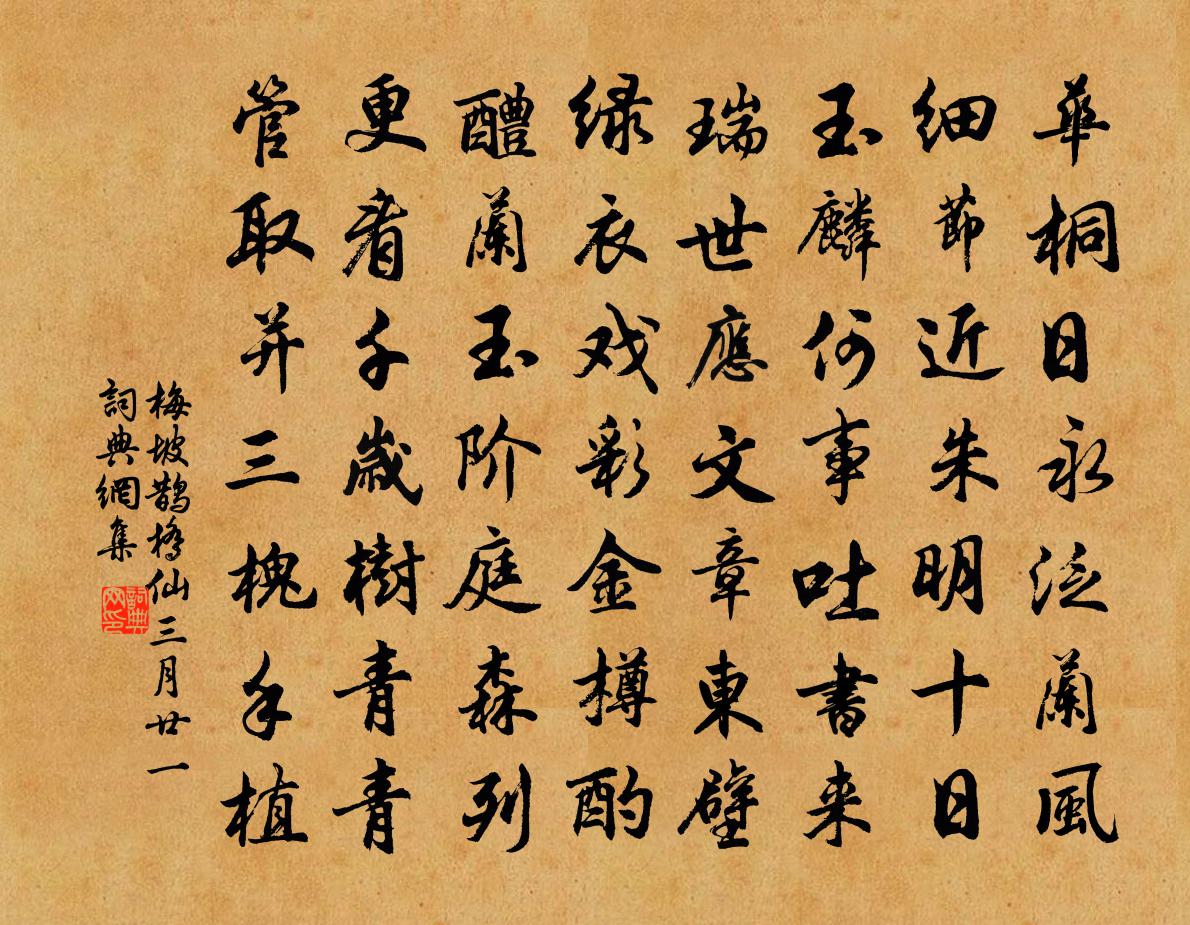 華桐日永泛蘭風
细莭近朱明十日
玉麟何事吐書来
瑞世應文章東壁
绿衣戏彩金樽酌
醴蘭玉阶庭森列
更看千歲樹青青
管取并三槐手植
梅坡鹊橋仙三月廿一
詞典網集
詞典网印